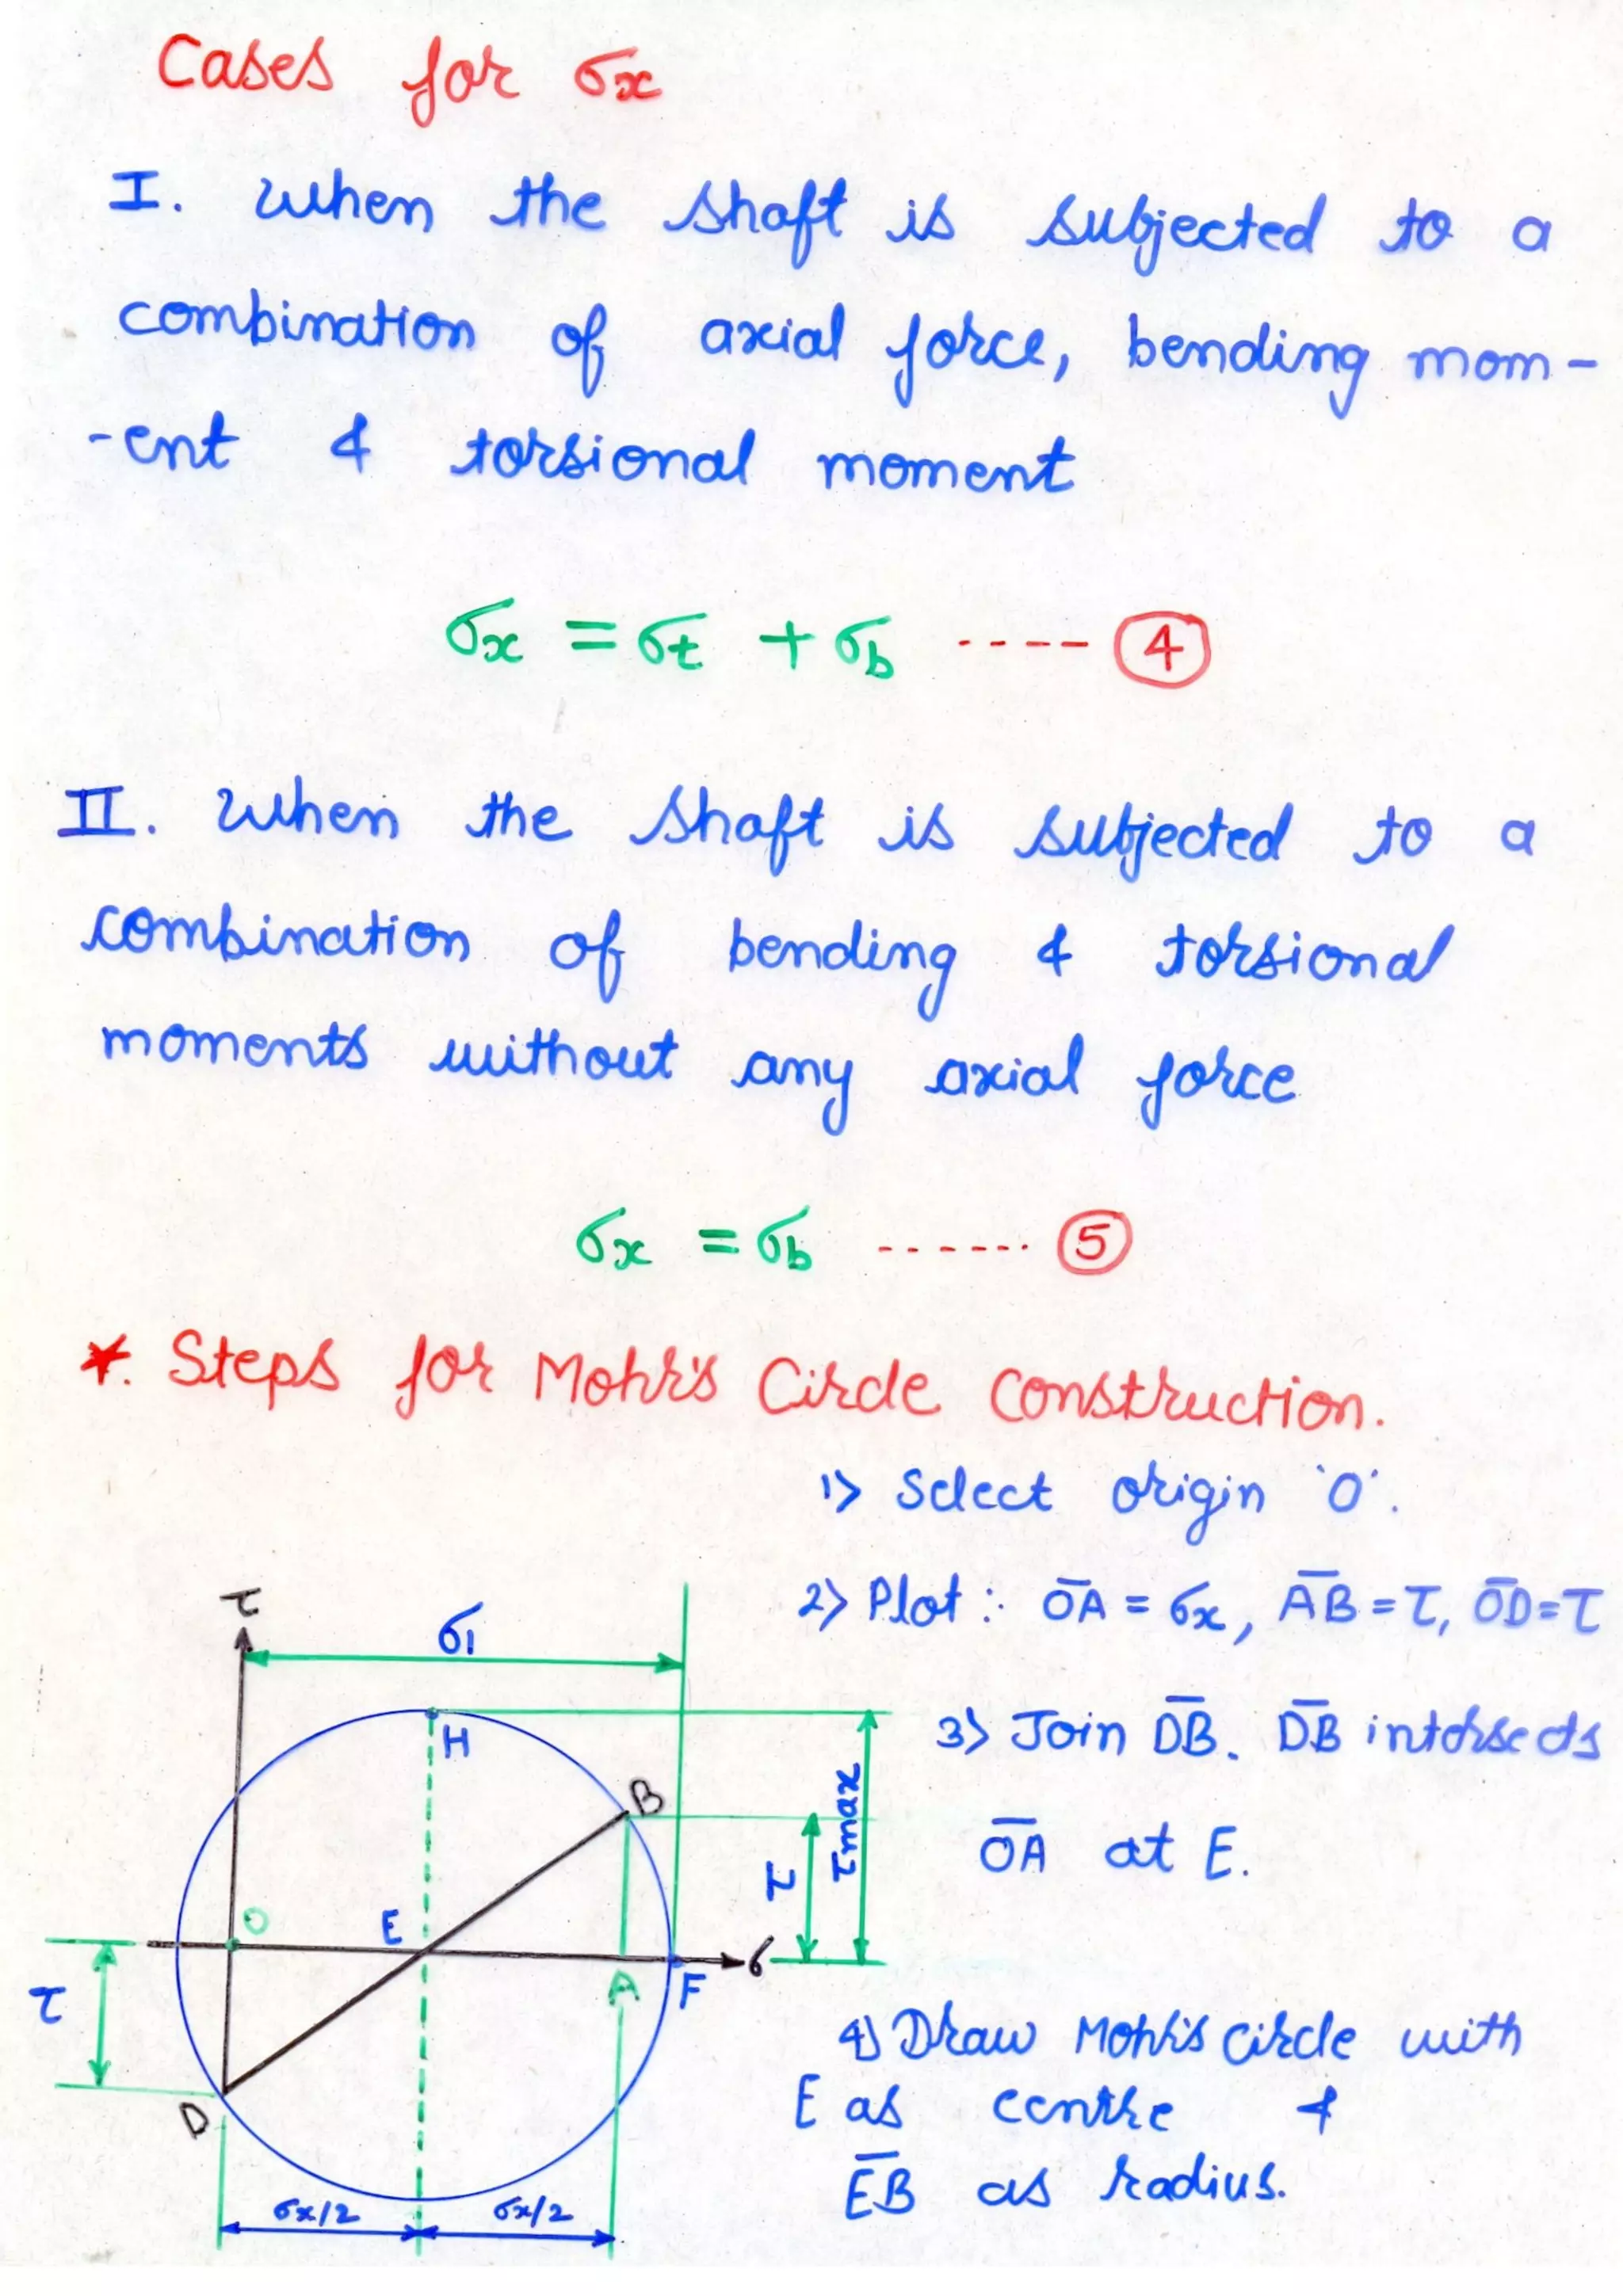 Cases for σx
I. When the shaft is subjected to a
combination of axial force, bending mom-
-ent & torsional moment
σx = σt + σb ---- 4
II. When the shaft is subjected to a
combination of bending & torsional
moments without any axial force
σx = σb ------- 5
*. Steps for Mohr's Circle Construction.
1> Select origin 'O'.
2> Plot : O̅A̅ = σx, A̅B̅ = τ, O̅D̅ = τ
3> Join D̅B̅. D̅B̅ intersects
O̅A̅ at E.
4) Draw Mohr's circle with
E as centre &
E̅B̅ as radius.
τ
σ1
H
B
τmax
τ
O
E
σ
A
F
τ
D
σx/2
σx/2